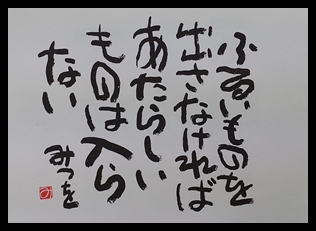 ふるいものを
出さなければ
あたらしい
ものは入ら
ない
みつを